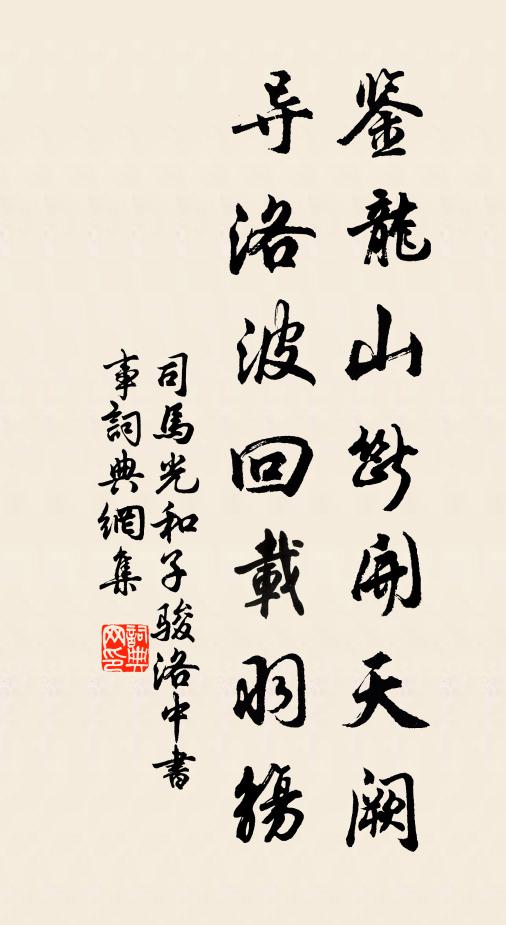 鉴龍山断開天闕
导洛波回載羽觴
司馬光和子駿洛中書
事詞典網集
詞典
网印